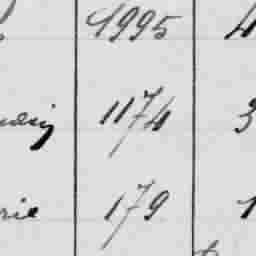 1995 4
1174 3
rie 179 1